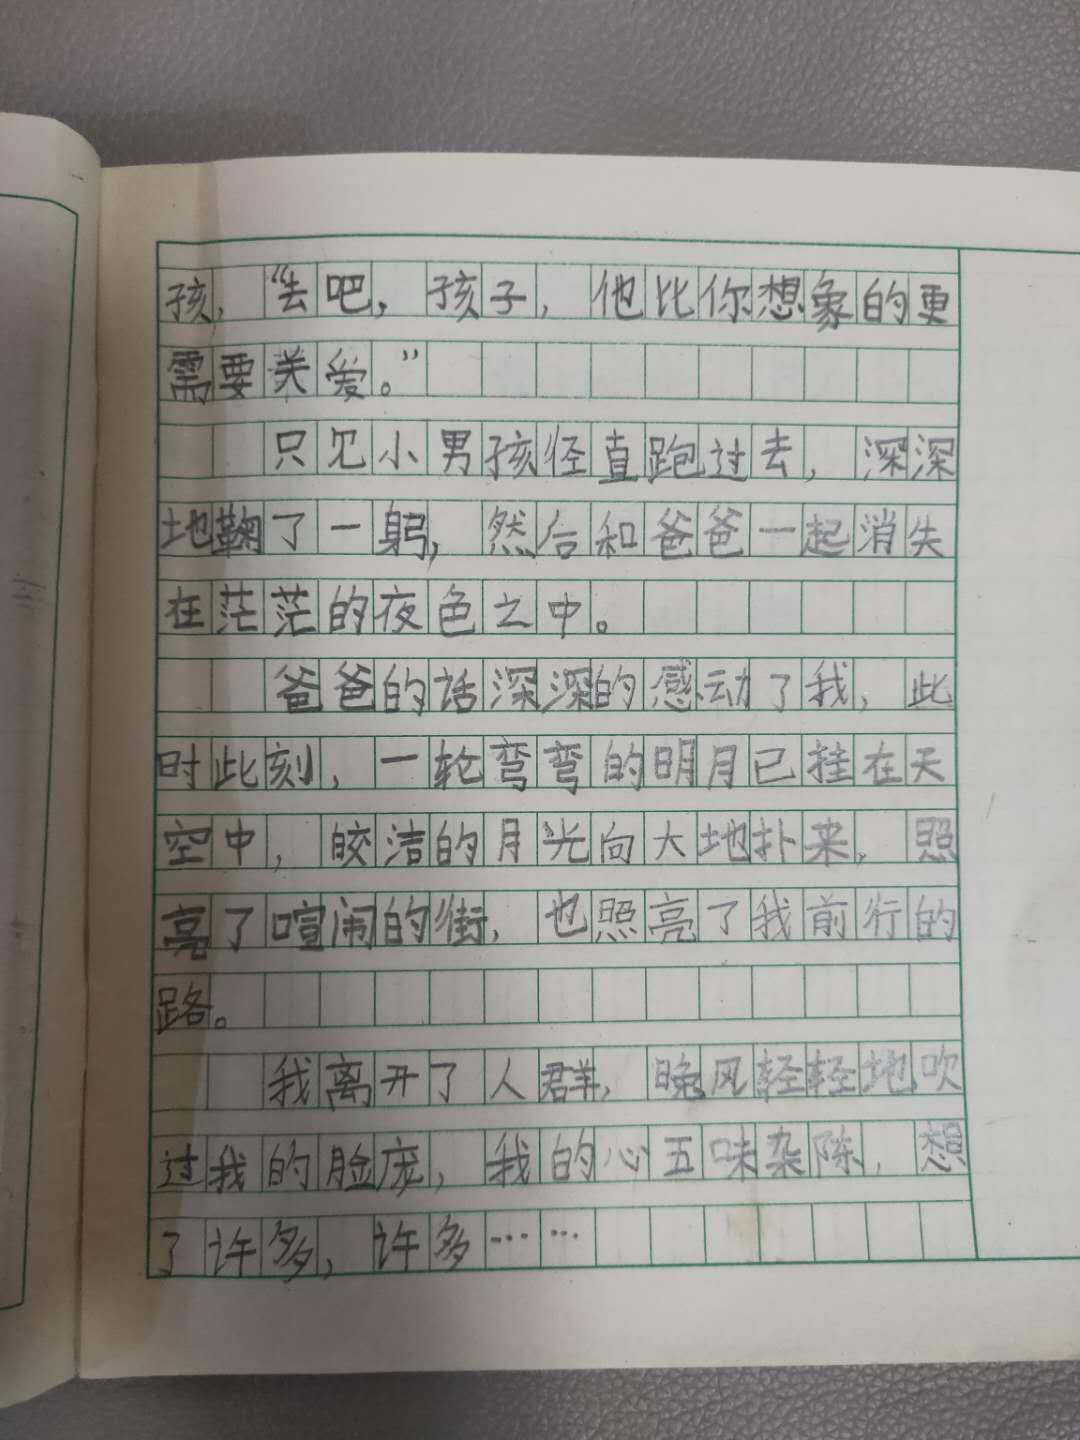 孩，“去吧，孩子，他比你想象的更
需要关爱。”
只见小男孩径直跑过去，深深
地鞠了一躬，然后和爸爸一起消失
在茫茫的夜色之中。
爸爸的话深深的感动了我，此
时此刻，一轮弯弯的明月已挂在天
空中，皎洁的月光向大地扑来，照
亮了喧闹的街，也照亮了我前行的
路。
我离开了人群，晚风轻轻地吹
过我的脸庞，我的心五味杂陈，想
了许多，许多……